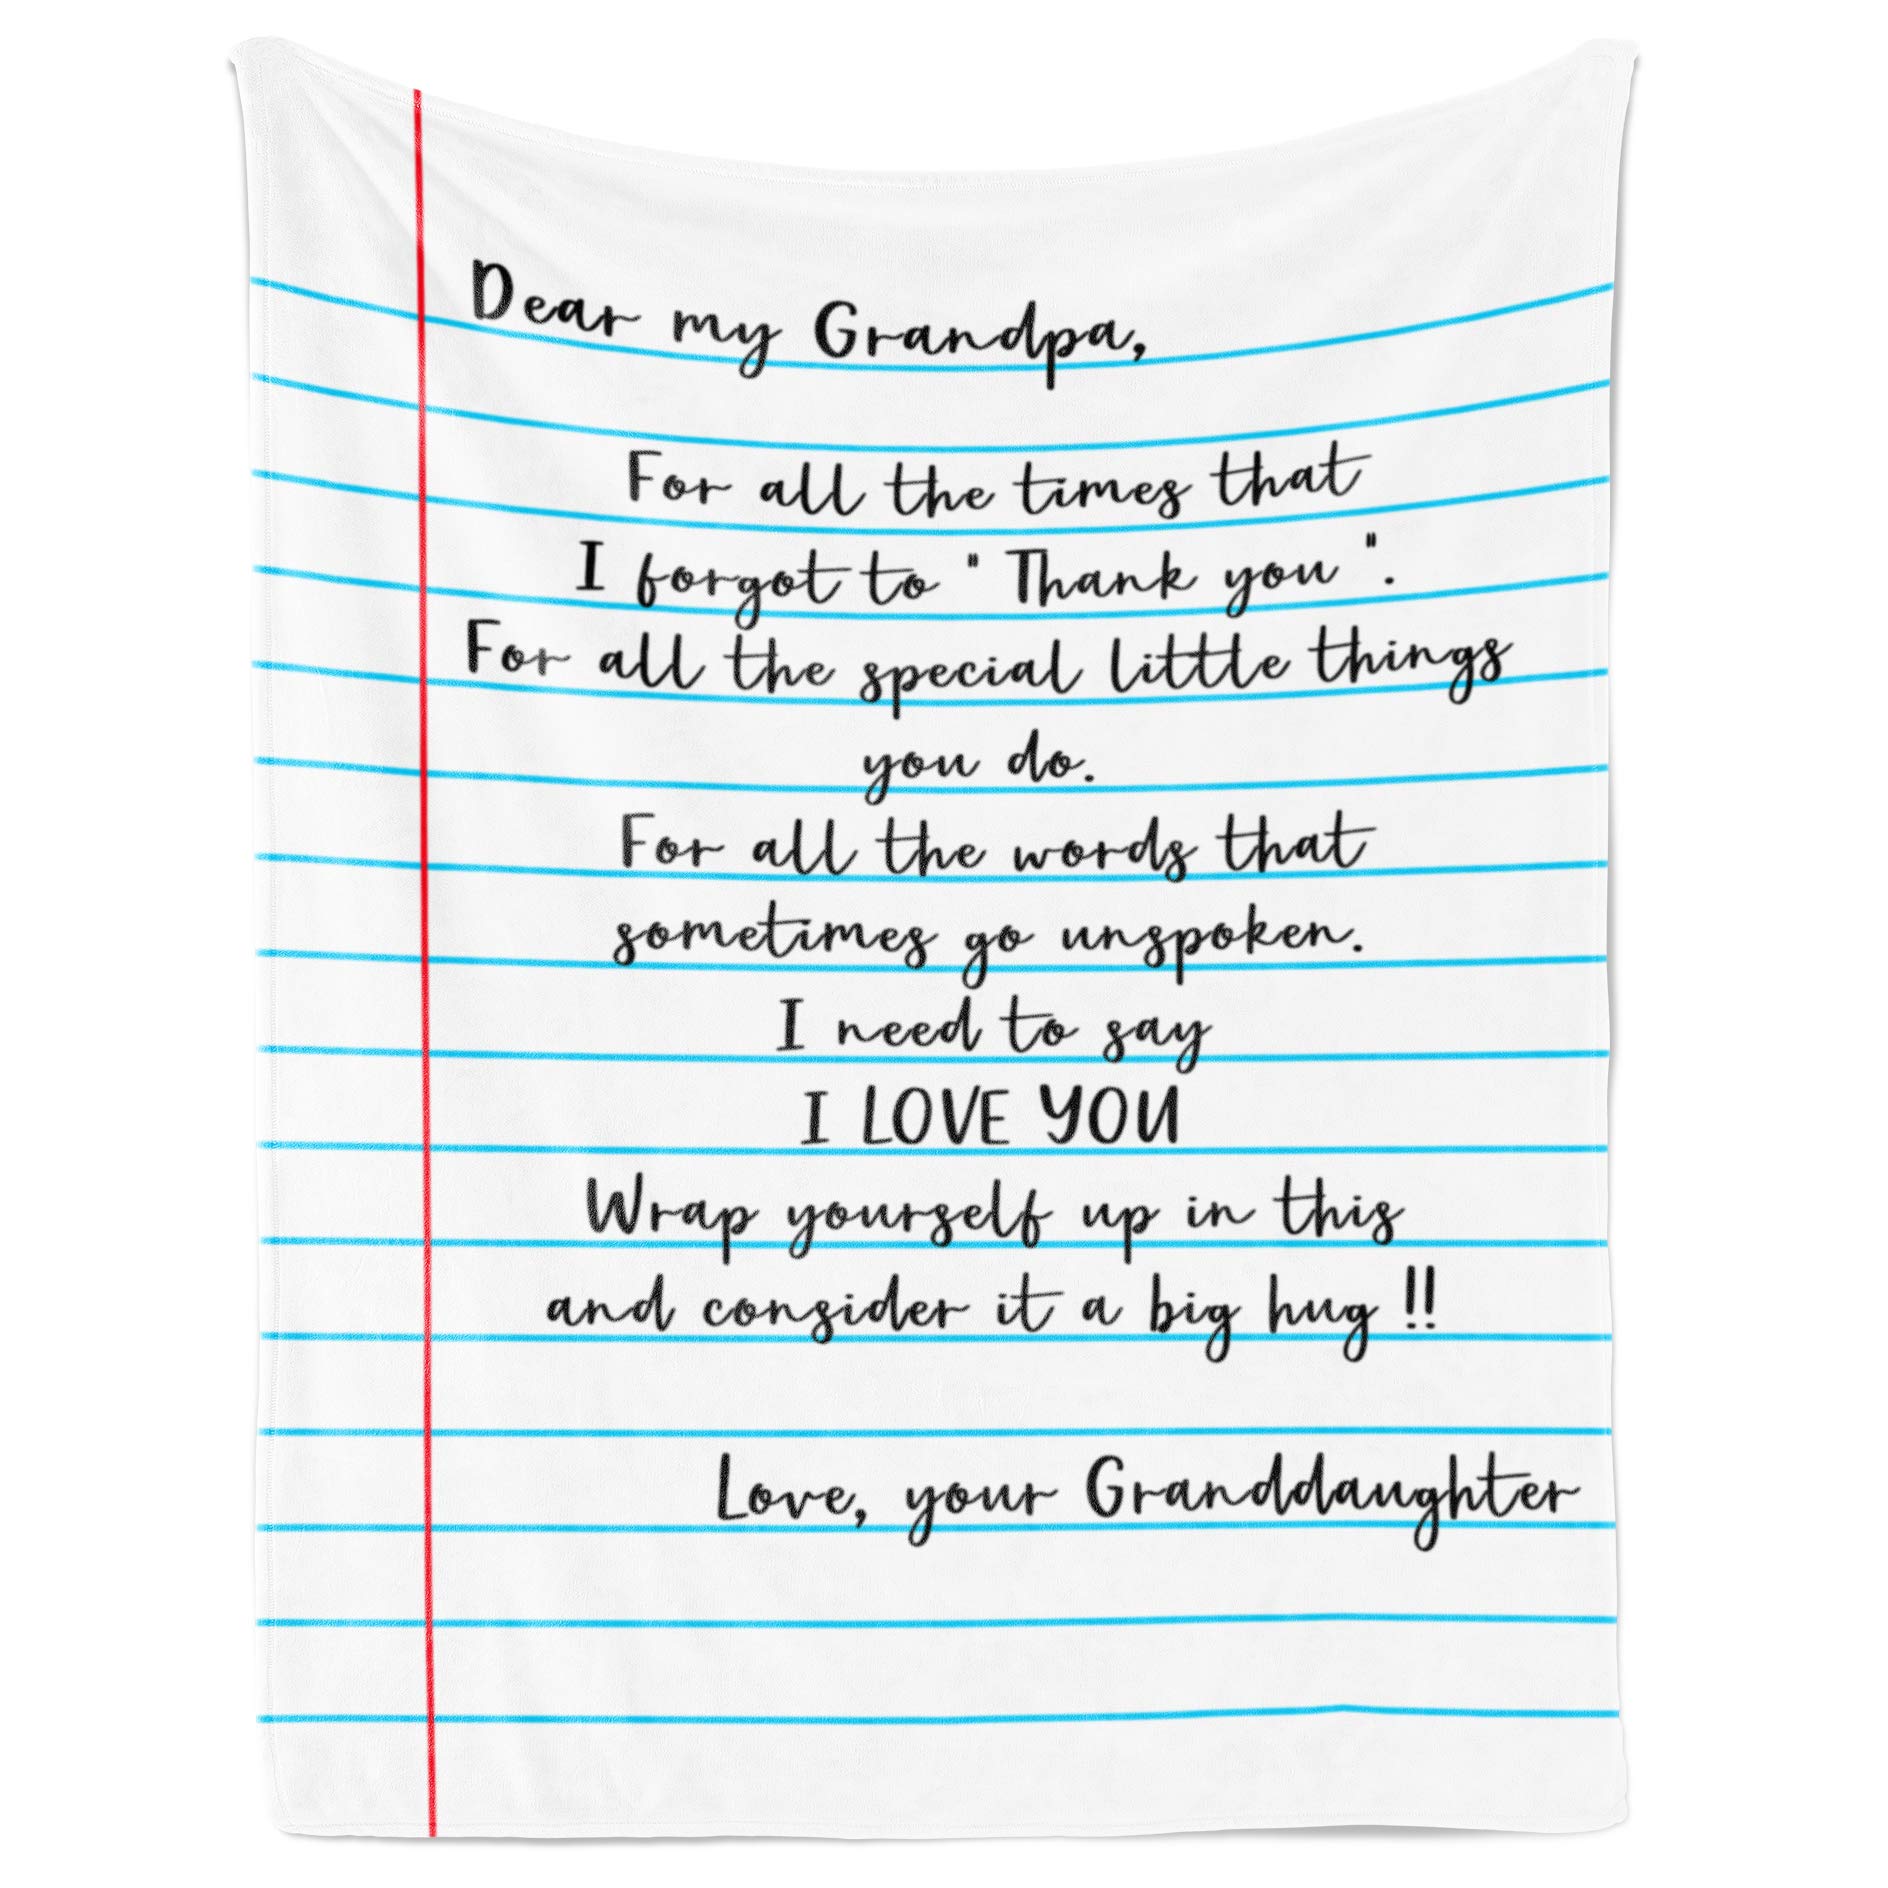 Dear my Grandpa,
For all the times that
I forgot to " Thank you ".
For all the special little things
you do.
For all the words that
sometimes go unspoken.
I need to say
I LOVE YOU
Wrap yourself up in this
and consider it a big hug !!
Love, your Granddaughter